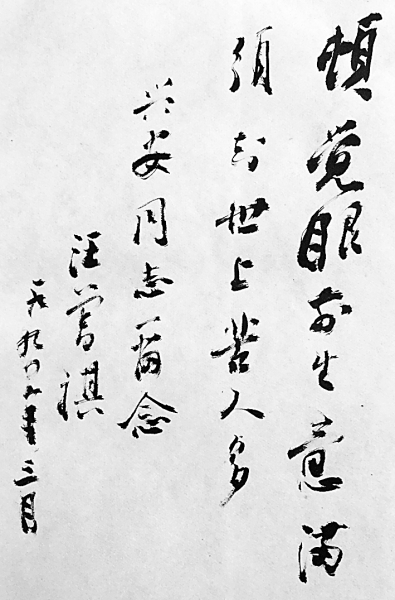 顿觉眼前生意满
须知世上苦人多
兴安同志留念
汪曾祺
一九年三月